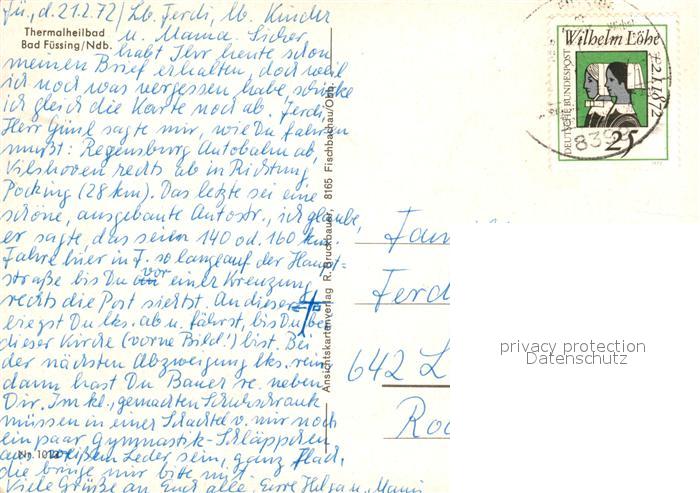 Fü., d. 21.2.72 / Lb. Ferdi, lb. Kinder
u. Mama. Sicher
habt Ihr heute schon
meinen Brief erhalten, doch weil
ich noch was vergessen habe, schicke
ich gleich die Karte noch ab. Ferdi,
Herr Günl sagte mir, wie Du fahren
mußt: Regensburg Autobahn ab,
Vilshoven rechts ab in Richtung
Pocking (28 km). Das letzte sei eine
schöne, ausgebaute Autostr., ich glaube,
er sagte, das seien 140 od. 160 km.
Fahre hier in F. so lange auf der Haupt=
straße bis Du vor einer Kreuzung
rechts die Post siehst. An dieser
biegst Du lks. ab u. fährst, bis Du bei
dieser Kirche (vorne Bild!) bist. Bei
der nächsten Abzweigung lks. rein
dann hast Du Bauer re. neben
Dir. Im kl., gemachten Schuhschrank
müssen in einer Schachtel v. mir noch
ein paar Gymnastik-Schläppchen
aus weißem Leder sein, ganz flach,
die bringe mir bitte mit.
Viele Grüße an Euch alle. Eure Helga u. Mami
Thermalheilbad
Bad Füssing/Ndb.
Nr. 10
Ansichtskartenverlag R. Bruckbauer, 8165 Fischbachau/Obb.
Wilhelm Löhe
DEUTSCHE BUNDESPOST
1872
25
839
Fam
Ferd
642 L
Ro
privacy protection
Datenschutz